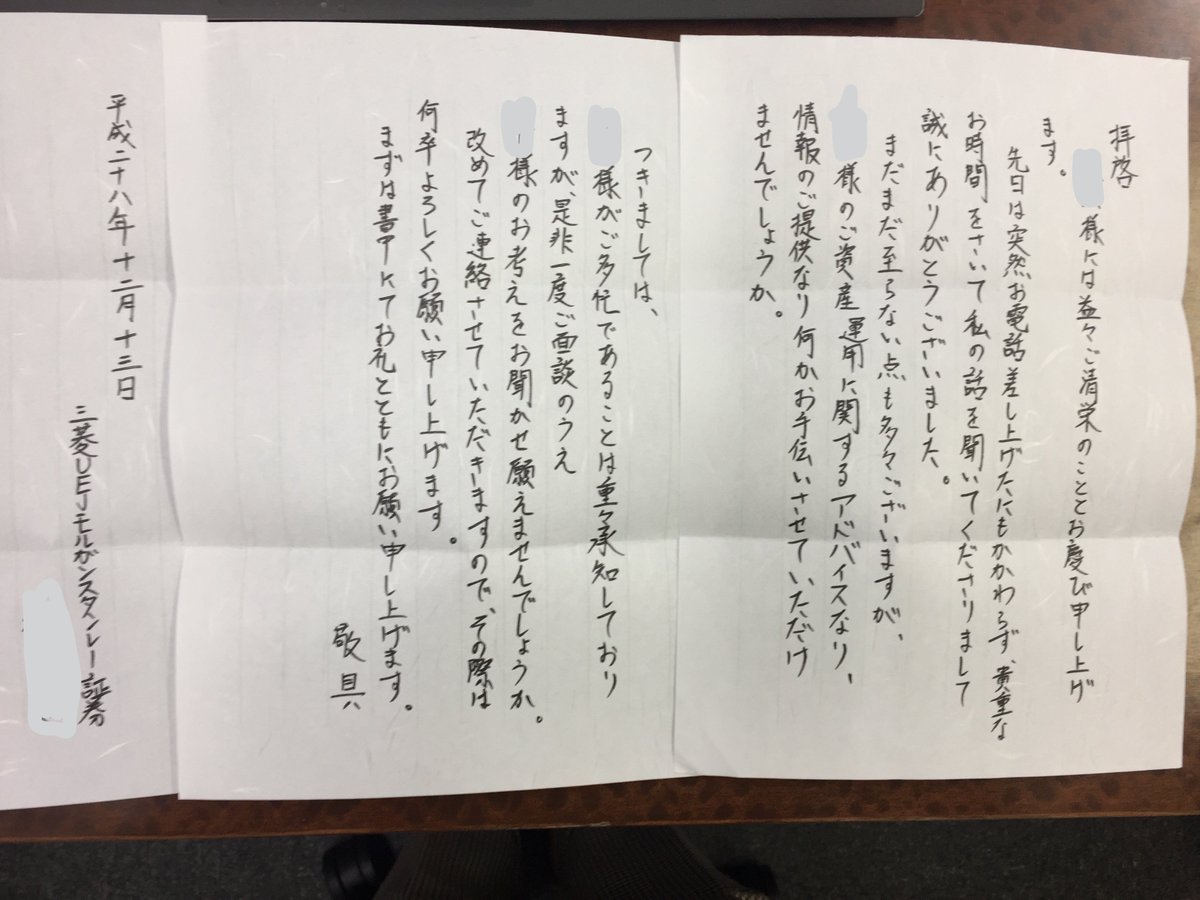 拝啓
様には益々ご清栄のこととお慶び申し上げ
ます。
先日は突然お電話差し上げたにもかかわらず、貴重な
お時間をさいて私の話を聞いてくださりまして
誠にありがとうございました。
まだまだ至らない点も多々ございますが、
様のご資産運用に関するアドバイスなり、
情報のご提供なり何かお手伝いさせていただけ
ませんでしょうか。
つきましては、
様がご多忙であることは重々承知しており
ますが、是非一度ご面談のうえ
様のお考えをお聞かせ願えませんでしょうか。
改めてご連絡させていただきますので、その際は
何卒よろしくお願い申し上げます。
まずは書中にてお礼とともにお願い申し上げます。
敬具
平成二十八年十二月十三日
三菱UFJモルガンスタンレー証券